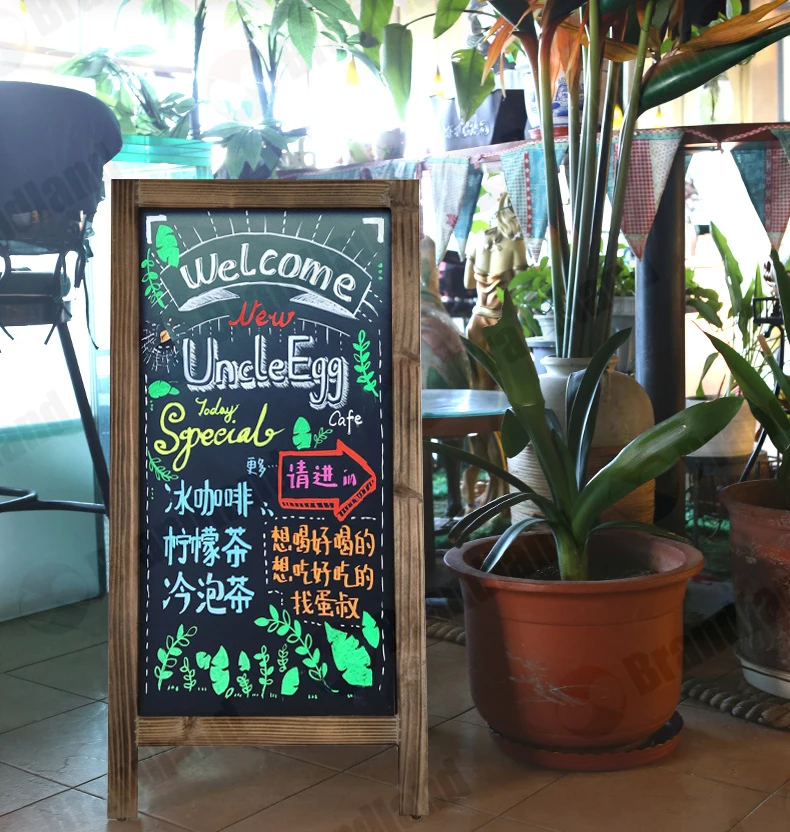 Welcome
New
UncleEgg
Cafe
Today
Special
更…
请进 in
冰咖啡
柠檬茶
冷泡茶
想喝好喝的
想吃好吃的
找蛋叔
Brandland